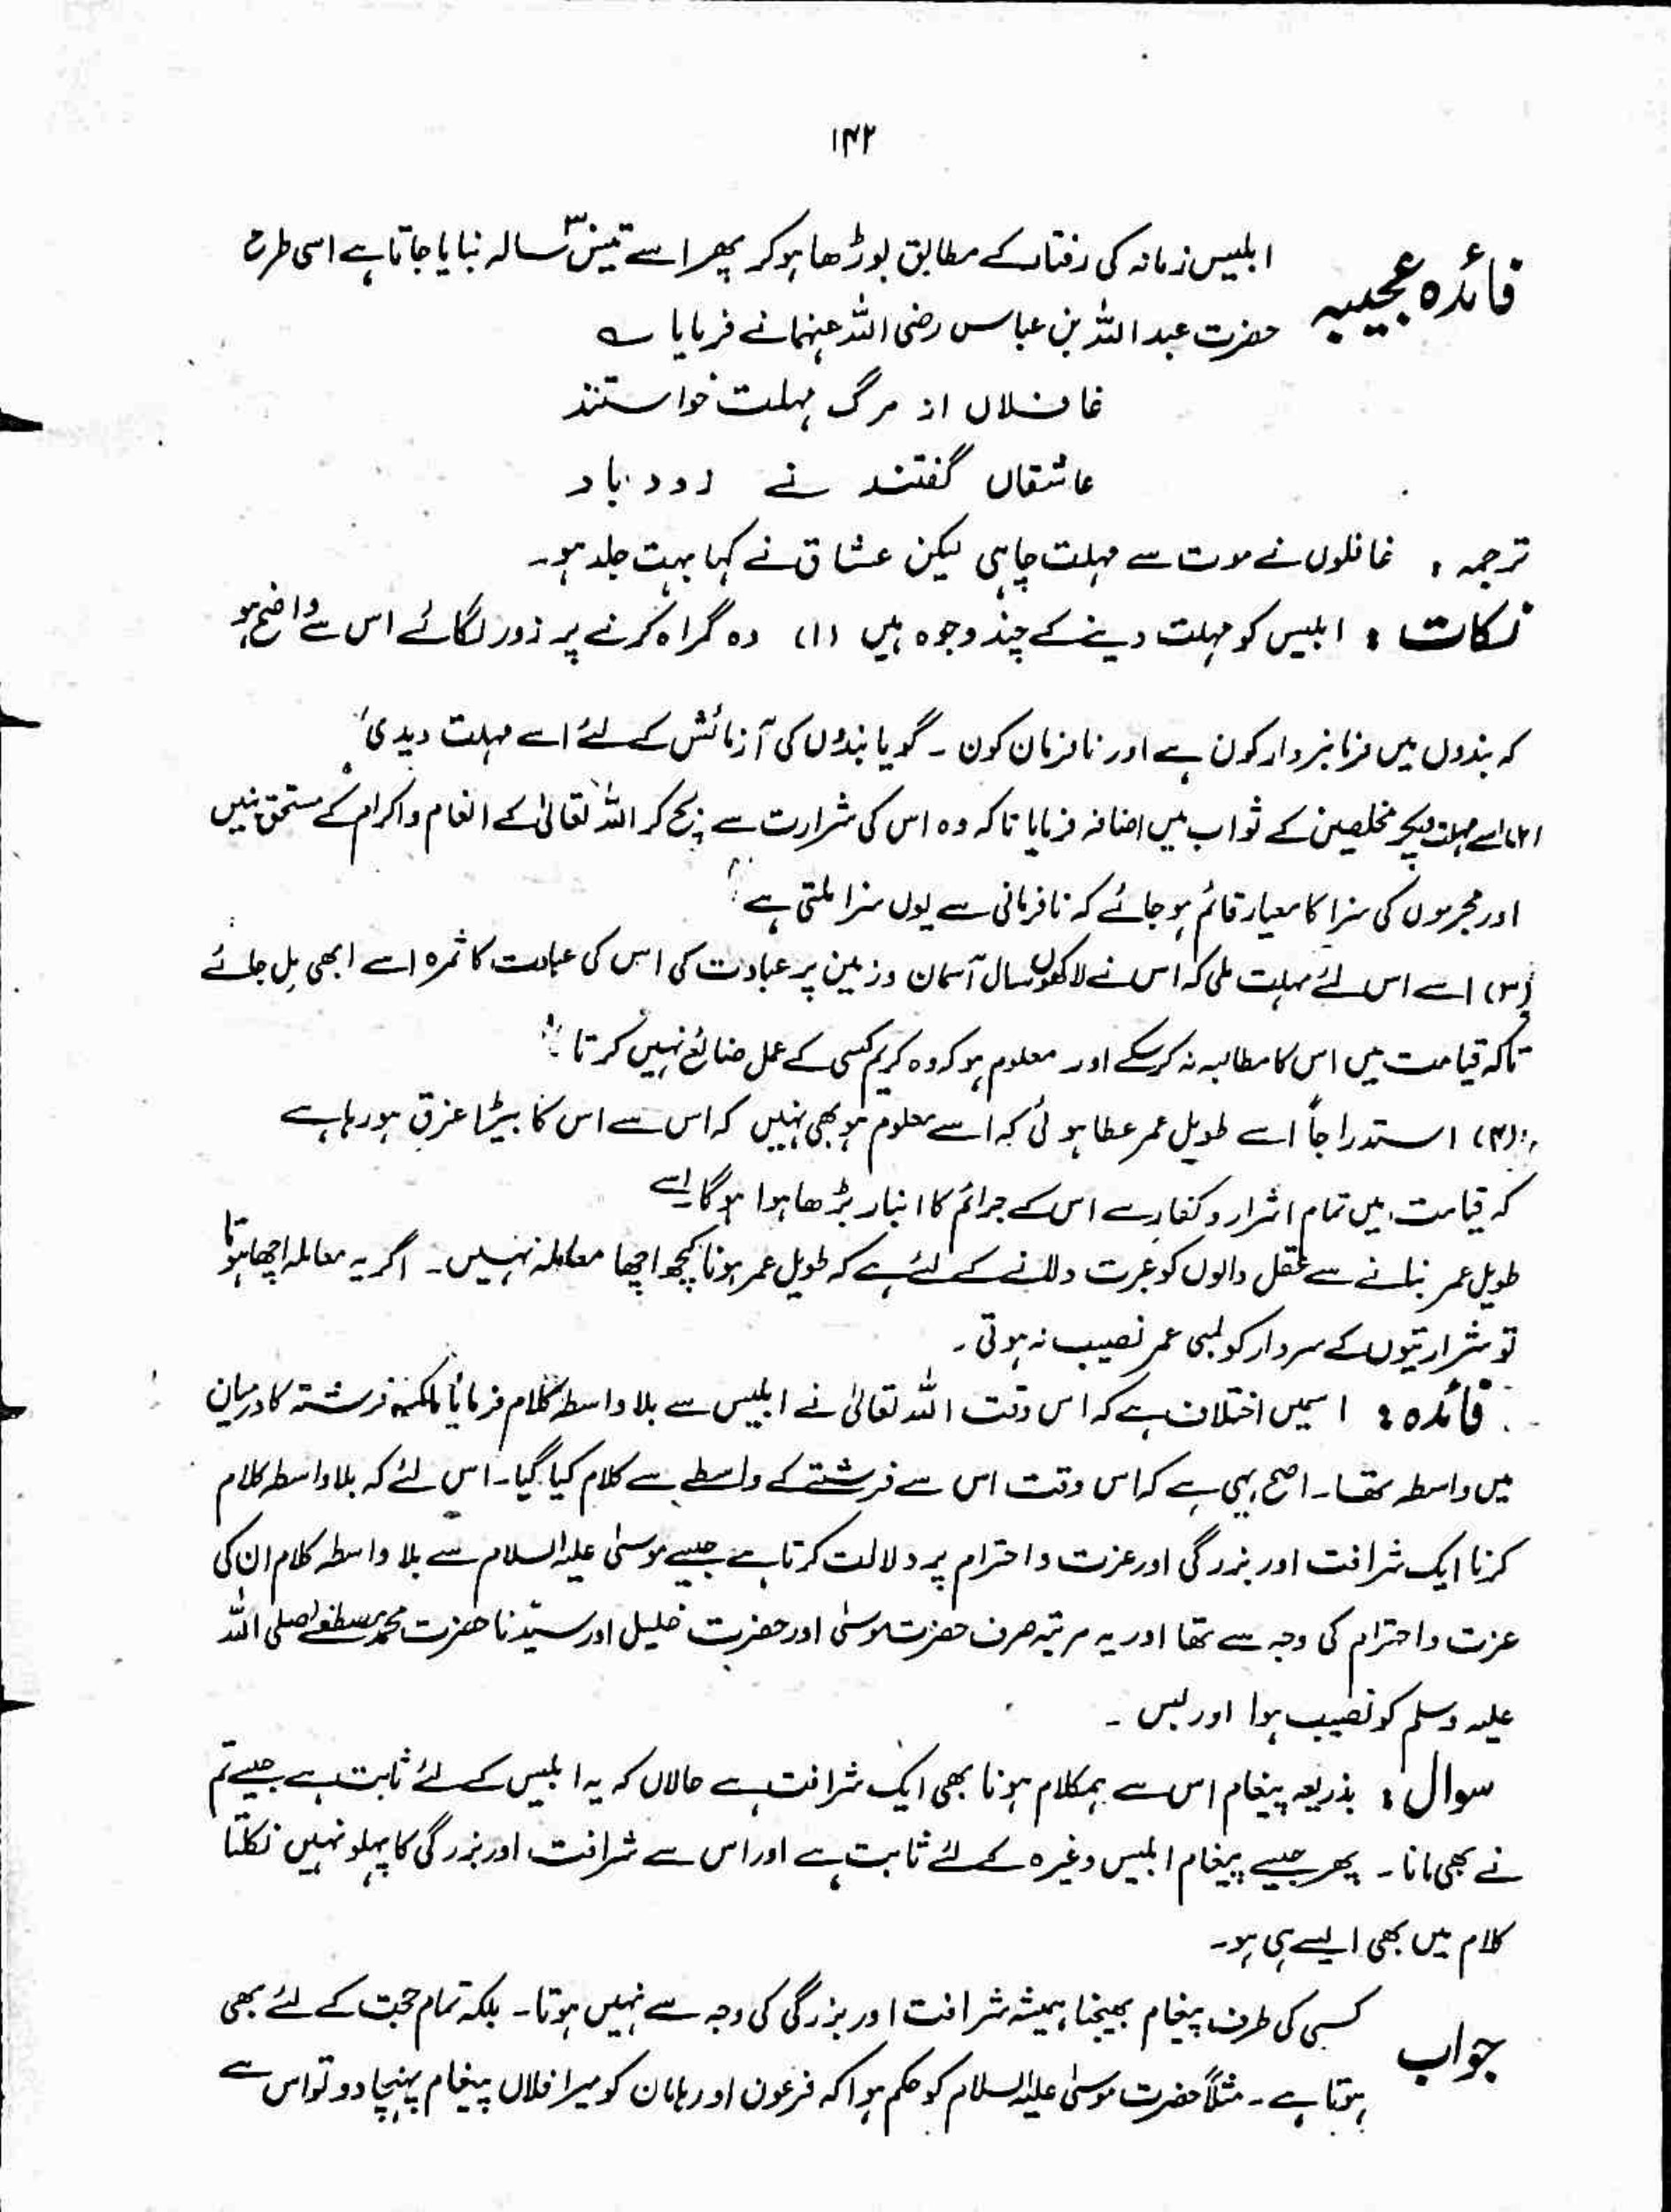 ۱۴۲
فائدہ عجیبہ
ابلیس زمانہ کی رفتار کے مطابق بوڑھا ہو کر پھر اسے تیس ۳۰ سالہ بنایا جاتا ہے اسی طرح
حضرت عبداللہ بن عباس رضی اللہ عنہما نے فرمایا ؎
غافلاں از مرگ مہلت خواستند
عاشقاں گفتند نے زود باد
ترجمہ : غافلوں نے موت سے مہلت چاہی لیکن عشاق نے کہا بہت جلد ہو۔
نکات : ابلیس کو مہلت دینے کے چند وجوہ ہیں (۱) وہ گمراہ کرنے پر زور لگائے اس سے واضح ہو
کہ بندوں میں فرمانبردار کون ہے اور نافرمان کون ۔ گویا بندوں کی آزمائش کے لئے اسے مہلت دیدی
(۲) اسے مہلت دیکر مخلصین کے ثواب میں اضافہ فرمایا تاکہ وہ اس کی شرارت سے بچ کر اللہ تعالیٰ کے انعام و اکرام کے مستحق بنیں
اور مجرموں کی سزا کا معیار قائم ہو جائے کہ نافرمانی سے یوں سزا ملتی ہے
(۳) اسے اس لئے مہلت ملی کہ اس نے لاکھوں سال آسمان و زمین پر عبادت کی اس کی عبادت کا ثمرہ اسے ابھی مل جائے
تاکہ قیامت میں اس کا مطالبہ نہ کر سکے اور معلوم ہو کہ وہ کریم کسی کے عمل ضائع نہیں کرتا
(۴) استدراجاً اسے طویل عمر عطا ہوئی کہ اسے معلوم ہو بھی نہیں کہ اس سے اس کا بیڑا غرق ہو رہا ہے
کہ قیامت میں تمام اشرار و کفار سے اس کے جرائم کا انبار بڑھا ہوا ہوگا اسے
طویل عمر بنانے سے عقل والوں کو عبرت دلانے کے لئے ہے کہ طویل عمر ہونا کچھ اچھا معاملہ نہیں ۔ اگر یہ معاملہ اچھا ہوتا
تو شرارتیوں کے سردار کو لمبی عمر نصیب نہ ہوتی ۔
فائدہ : اسمیں اختلاف ہے کہ اس وقت اللہ تعالیٰ نے ابلیس سے بلا واسطہ کلام فرمایا یا فرشتہ کا درمیان
میں واسطہ تھا ۔ اصح یہی ہے کہ اس وقت اس سے فرشتے کے واسطے سے کلام کیا گیا ۔ اس لئے کہ بلا واسطہ کلام
کرنا ایک شرافت اور بزرگی اور عزت و احترام پر دلالت کرتا ہے جیسے موسیٰ علیہ السلام سے بلا واسطہ کلام ان کی
عزت و احترام کی وجہ سے تھا اور یہ مرتبہ صرف حضرت موسیٰ اور حضرت خلیل اور سیدنا حضرت محمد مصطفےٰ صلی اللہ
علیہ وسلم کو نصیب ہوا اور بس ۔
سوال : بذریعہ پیغام اس سے ہمکلام ہونا بھی ایک شرافت ہے حالاں کہ یہ ابلیس کے لئے ثابت ہے جیسے تم
نے بھی مانا ۔ پھر جیسے پیغام ابلیس وغیرہ کے لئے ثابت ہے اور اس سے شرافت اور بزرگی کا پہلو نہیں نکلتا
کلام میں بھی ایسے ہی ہو ۔
جواب
کسی کی طرف پیغام بھیجنا ہمیشہ شرافت اور بزرگی کی وجہ سے نہیں ہوتا ۔ بلکہ تمام حجت کے لئے بھی
ہوتا ہے ۔ مثلاً حضرت موسیٰ علیہ السلام کو حکم ہوا کہ فرعون اور ہامان کو میرا فلاں پیغام پہنچا دو تو اس سے